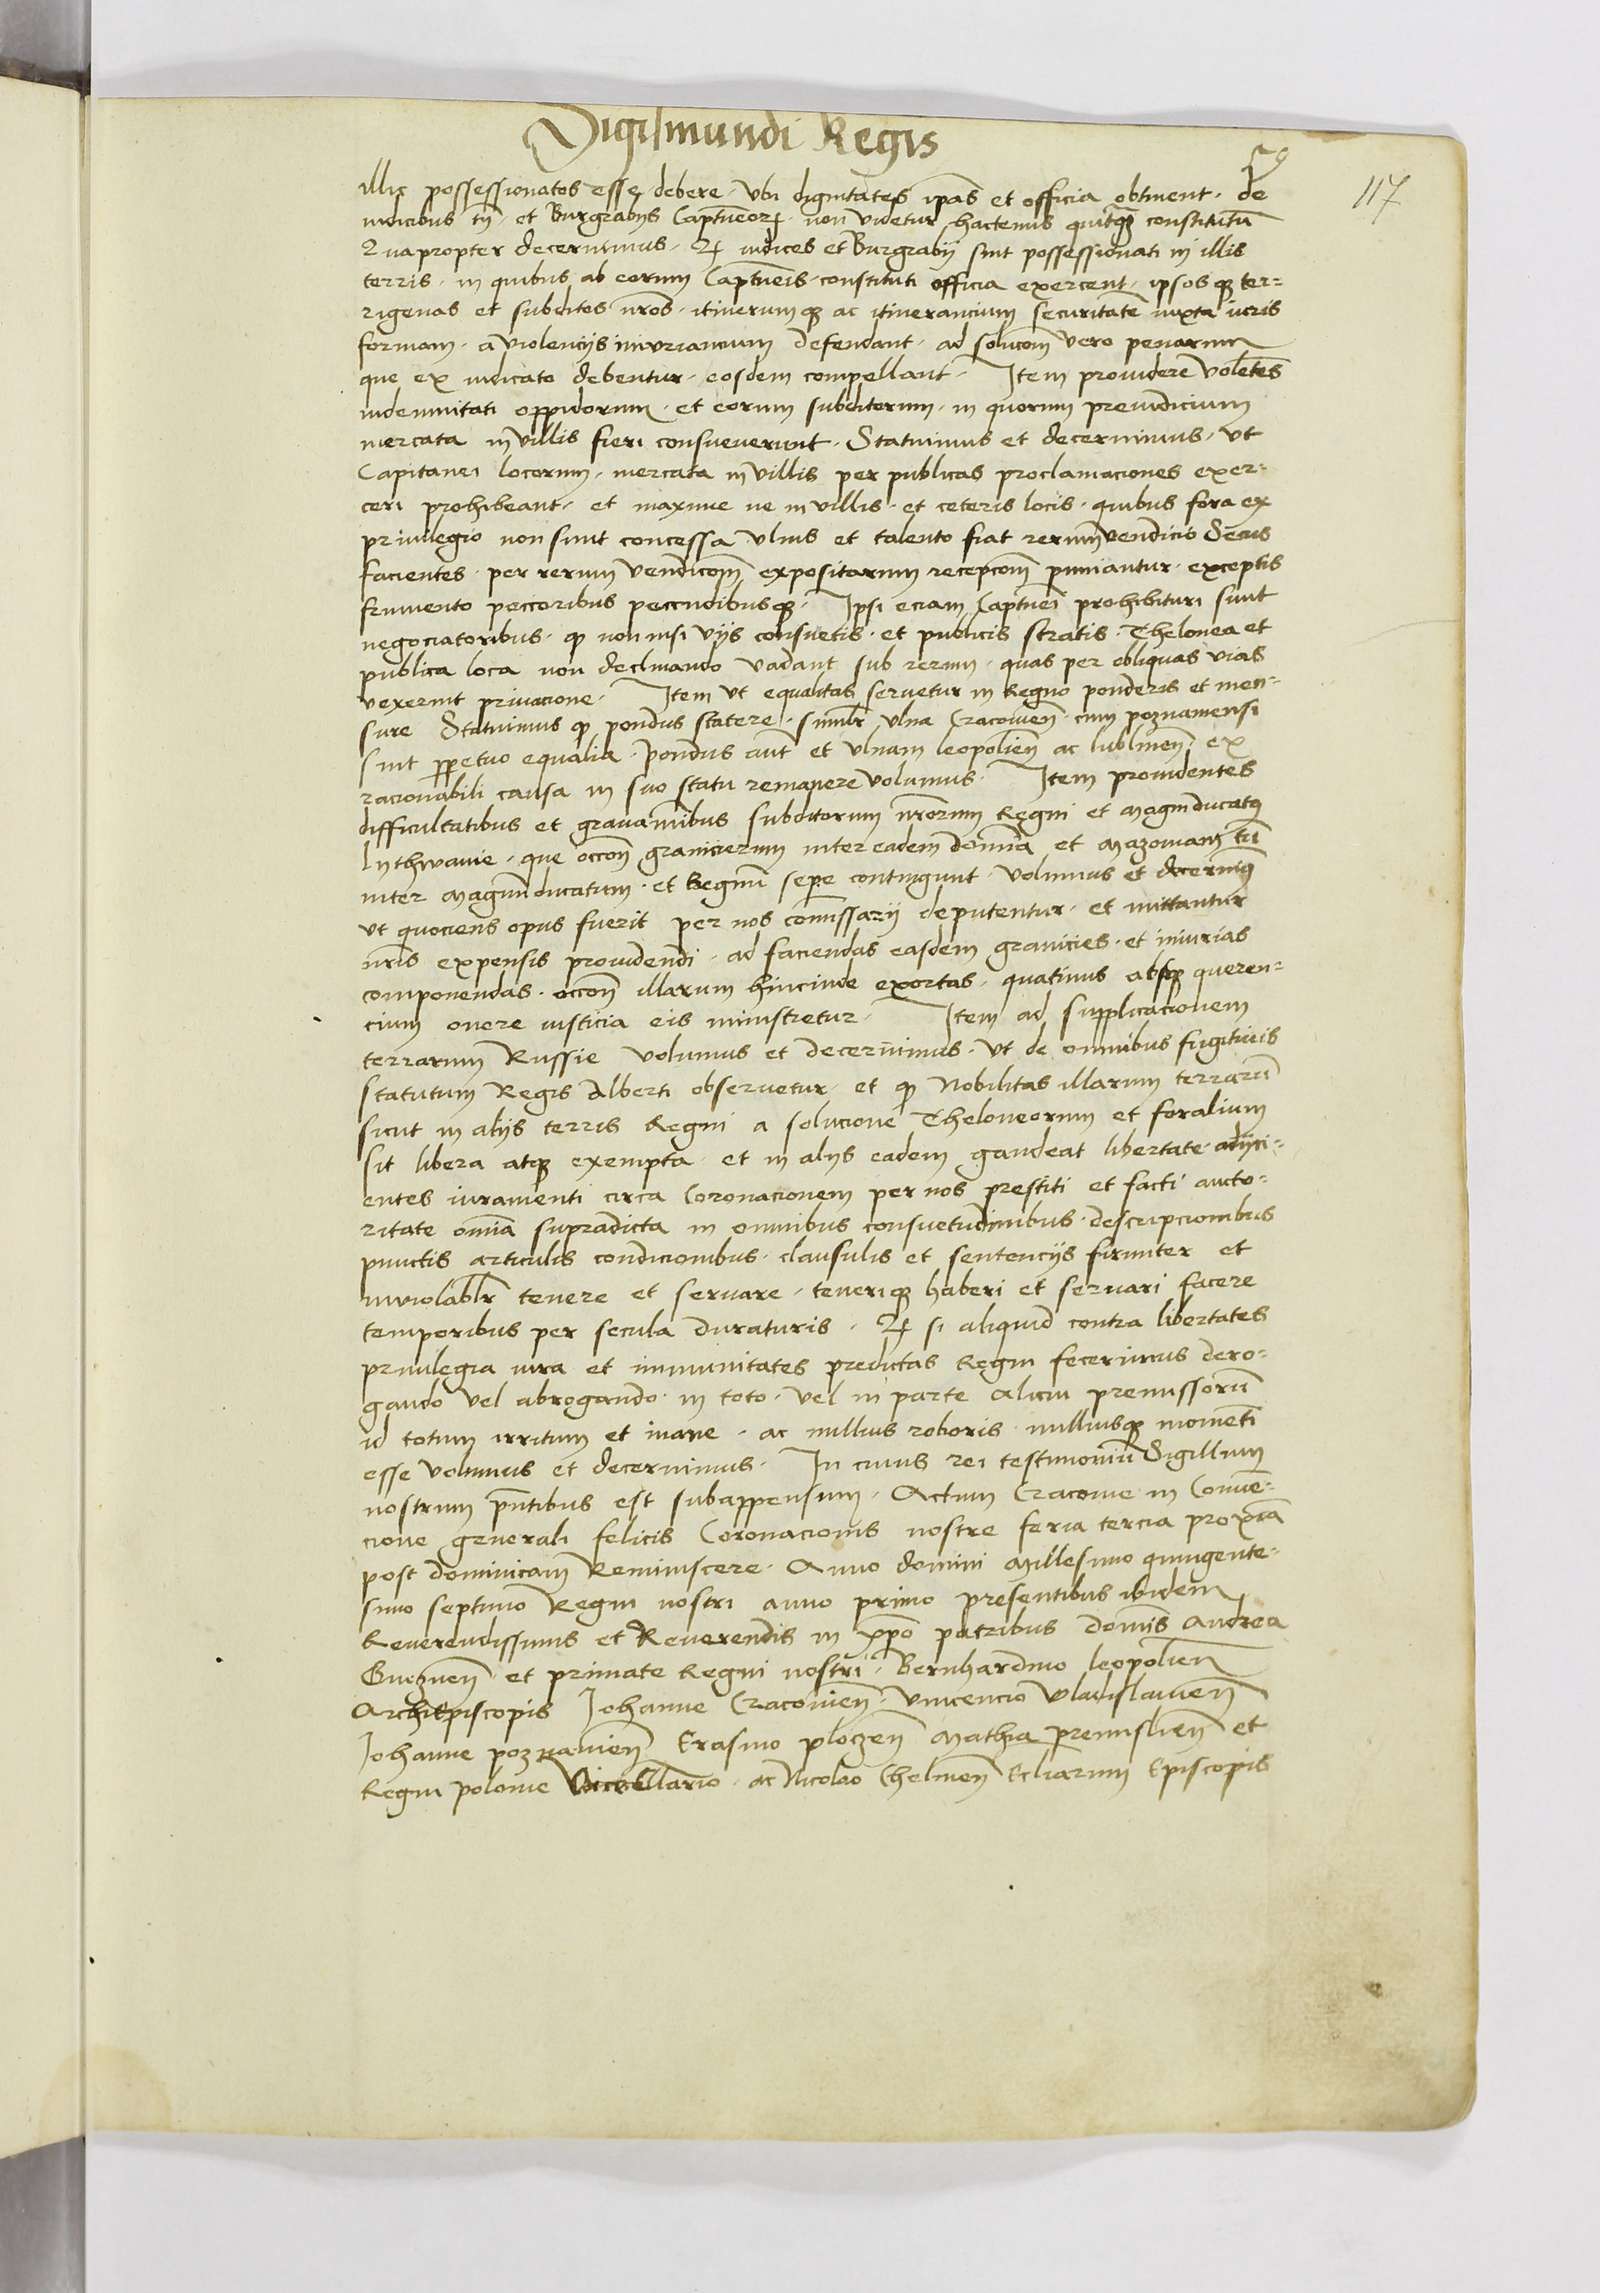 Sigismundi Regis
117
illic possessionatos esse debere, vbi dignitates ipas et officia obtinent. de
iudicibus tn̄. et Burgrabijs Captneorꝫ. non videtur hactenus quitqꝫ constitutū
Quapropter decernimus. Qꝫ iudices et Burgrabij sint possessionati in illis
terris. in quibus ab eorum Captneis constituti officia exercent. ipsosqꝫ ter=
rigenas et subditos nros. itinerumqꝫ ac itinerancium securitatē iuxta iuris
formam. a violencijs iniuriancium defendant. ad solucōm vero penarum
que ex iudicato debentur. eosdem compellant. Item prouidere volētes
indemnitati oppidorum. et eorum subditorum. in quorum preiudicium
mercata in villis fieri consueuerunt. Statuimus et decernimus, vt
Capitanei locorum. mercata in villis per publicas proclamaciones exer=
ceri prohibeant. et maxime ne in villis. et ceteris locis. quibus fora ex
priuilegio non sunt concessa vlnis et talento fiat rerum vendicio Secus
facientes. per rerum vendicōm expositarum recepcōm puniantur. exceptis
frumento peccoribus peccudibusqꝫ. Ipsi eciam Captnei prohibituri sunt
negociatoribus. qꝫ non nisi vijs consuetis. et publicis stratis. Thelonea et
publica loca non declinando vadant sub rerum. quas per obliquas vias
vexerint priuacione. Item vt equalitas seruetur in Regno ponderis et men=
sure Statuimus qꝫ pondus statere. similr vlna Cracouien̄. cum poznaniensi
sint ꝑpetuo equalia. Pondus aut et vlnam leopolien̄ ac lublinen̄. ex
racionabili causa in suo statu remanere volumus. Item prouidentes
difficultatibus et grauaminibus subditorum nrorum Regni et Magniducatus
Lythwanie. que occōn granicierum inter eadem domīa et Mazouiam tū
inter Magnumducatum. et Regnū sepe contingunt. volumus et decernimꝰ
vt quociens opus fuerit per nos comissarij deputentur. et mittantur
nris expensis prouidendi. ad faciendas easdem granicies. et iniurias
componendas. occōn illarum hincinde exortas. quatinus absqꝫ queren=
cium onere iusticia eis ministretur. Item ad supplicacionem
terrarum Russie volumus et decernimus. vt de omnibus fugitiuis
statutum Regis Alberti obseruetur. et qꝫ Nobilitas illarum terrarū
sicut in alijs terris Regni a solucione Theloneorum et foralium
sit libera atqꝫ exempta. et in alijs eadem gaudeat libertate. adijci=
entes iuramenti circa Coronacionem per nos prestiti et facti aucto=
ritate omīa supradicta in omnibus consuetudinibus. descripcionibus
punctis articulis condicionibus. clausulis et sentencijs firmiter et
inuiolablr tenere et seruare. teneriqꝫ haberi et seruari facere
temporibus per secula duraturis. Qꝫ si aliquid contra libertates
priuilegia iura et immunitates predictas Regni fecerimus dero=
gando vel abrogando. in toto. vel in parte alicui premissorū
id totum irritum et inane. ac nullius roboris. nulliusqꝫ momenti
esse volumus et decernimus. In cuius rei testimoniū Sigillum
nostrum pn̄tibus est subappensum. Actum Cracouie in Conuen=
cione generali felicis Coronacionis nostre feria tercia proxima
post dominicam Reminiscere. Anno domini Millesimo quingente=
simo septimo Regni nostri anno primo presentibus ibidem
Reuerendissimis et Reuerendis in xpo patribus domīs Andrea
Gneznen̄. et primate Regni nostri. Bernhardino leopolien̄
Archiepiscopis Johanne Cracouien̄. Vincencio Vladislauien̄
Johanne poznanien̄ Erasmo plocen̄ Mathia premislien̄ et
Regni polonie Vicecellario. ac Nicolao Chelmen̄ Eccliarum Episcopis